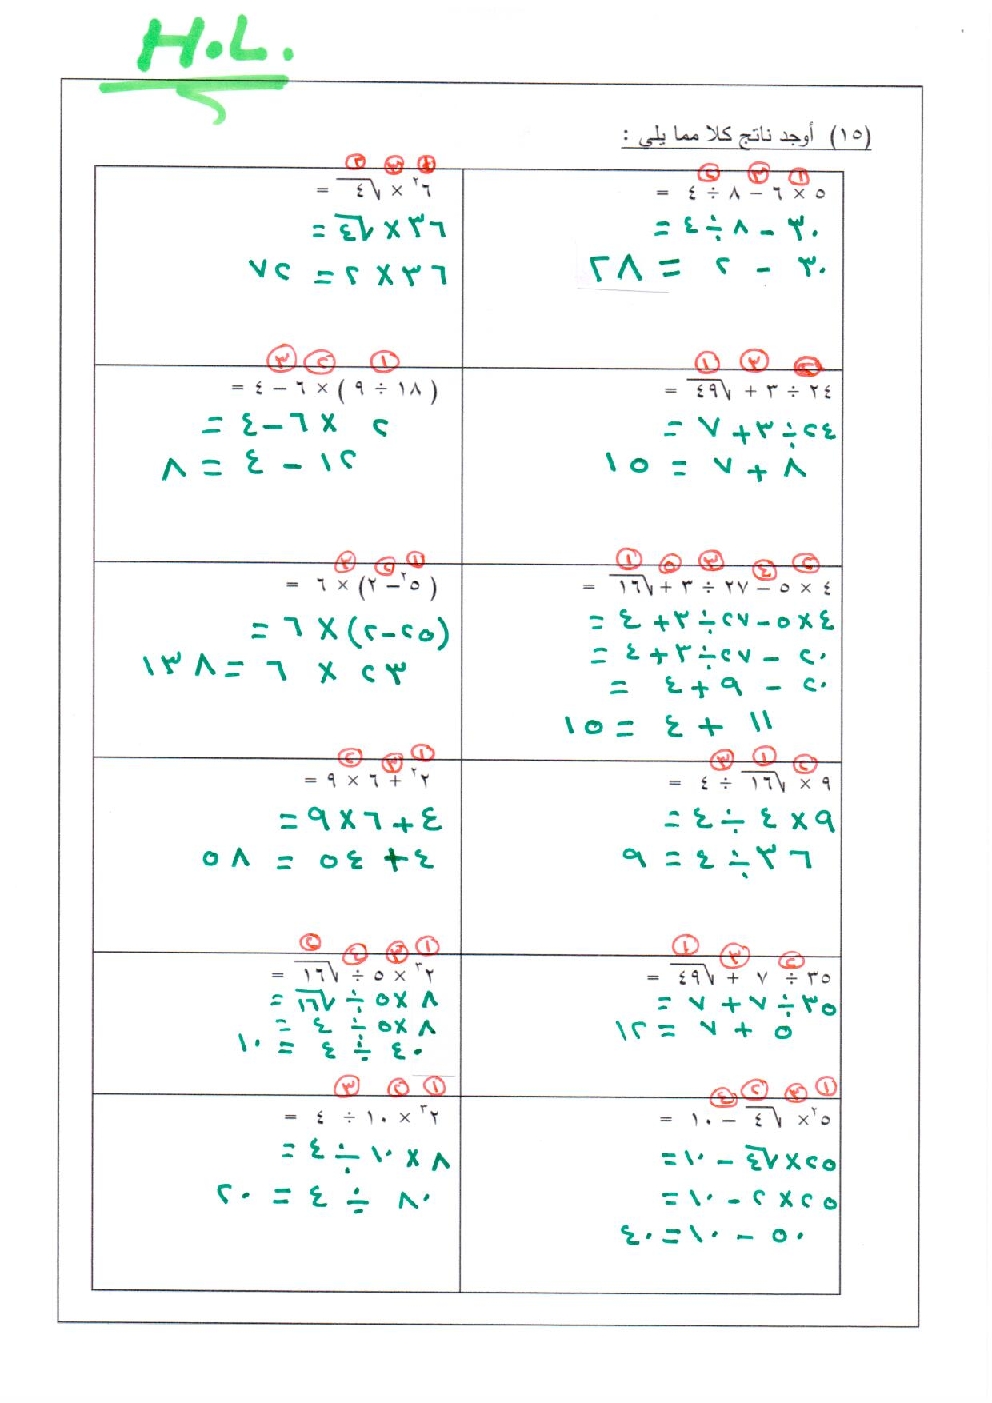 H.L.
(١٥) أوجد ناتج كلا مما يلي :
١ ٣ ٢
٥ × ٦ − ٨ ÷ ٤ =
٣٠ − ٨ ÷ ٤ =
٣٠ − ٢ = ٢٨
١ ٣ ٢
٦² × √٤ =
٣٦ × √٤ =
٣٦ × ٢ = ٧٢
٢ ٣ ١
٢٤ ÷ ٣ + √٤٩ =
٢٤ ÷ ٣ + ٧ =
٨ + ٧ = ١٥
١ ٢ ٣
(١٨ ÷ ٩) × ٦ − ٤ =
٢ × ٦ − ٤ =
١٢ − ٤ = ٨
٢ ٤ ٣ ٥ ١
٤ × ٥ − ٢٧ ÷ ٣ + √١٦ =
٤ × ٥ − ٢٧ ÷ ٣ + ٤ =
٢٠ − ٢٧ ÷ ٣ + ٤ =
٢٠ − ٩ + ٤ =
١١ + ٤ = ١٥
١ ٢ ٣
(٥² − ٢) × ٦ =
(٢٥ − ٢) × ٦ =
٢٣ × ٦ = ١٣٨
٢ ١ ٣
٩ × √١٦ ÷ ٤ =
٩ × ٤ ÷ ٤ =
٣٦ ÷ ٤ = ٩
١ ٣ ٢
٢² + ٦ × ٩ =
٤ + ٦ × ٩ =
٤ + ٥٤ = ٥٨
٢ ٣ ١
٣٥ ÷ ٧ + √٤٩ =
٣٥ ÷ ٧ + ٧ =
٥ + ٧ = ١٢
١ ٣ ٤ ٢
٢³ × ٥ ÷ √١٦ =
٨ × ٥ ÷ √١٦ =
٨ × ٥ ÷ ٤ =
٤٠ ÷ ٤ = ١٠
١ ٣ ٢ ٤
٥² × √٤ − ١٠ =
٢٥ × √٤ − ١٠ =
٢٥ × ٢ − ١٠ =
٥٠ − ١٠ = ٤٠
١ ٢ ٣
٢³ × ١٠ ÷ ٤ =
٨ × ١٠ ÷ ٤ =
٨٠ ÷ ٤ = ٢٠